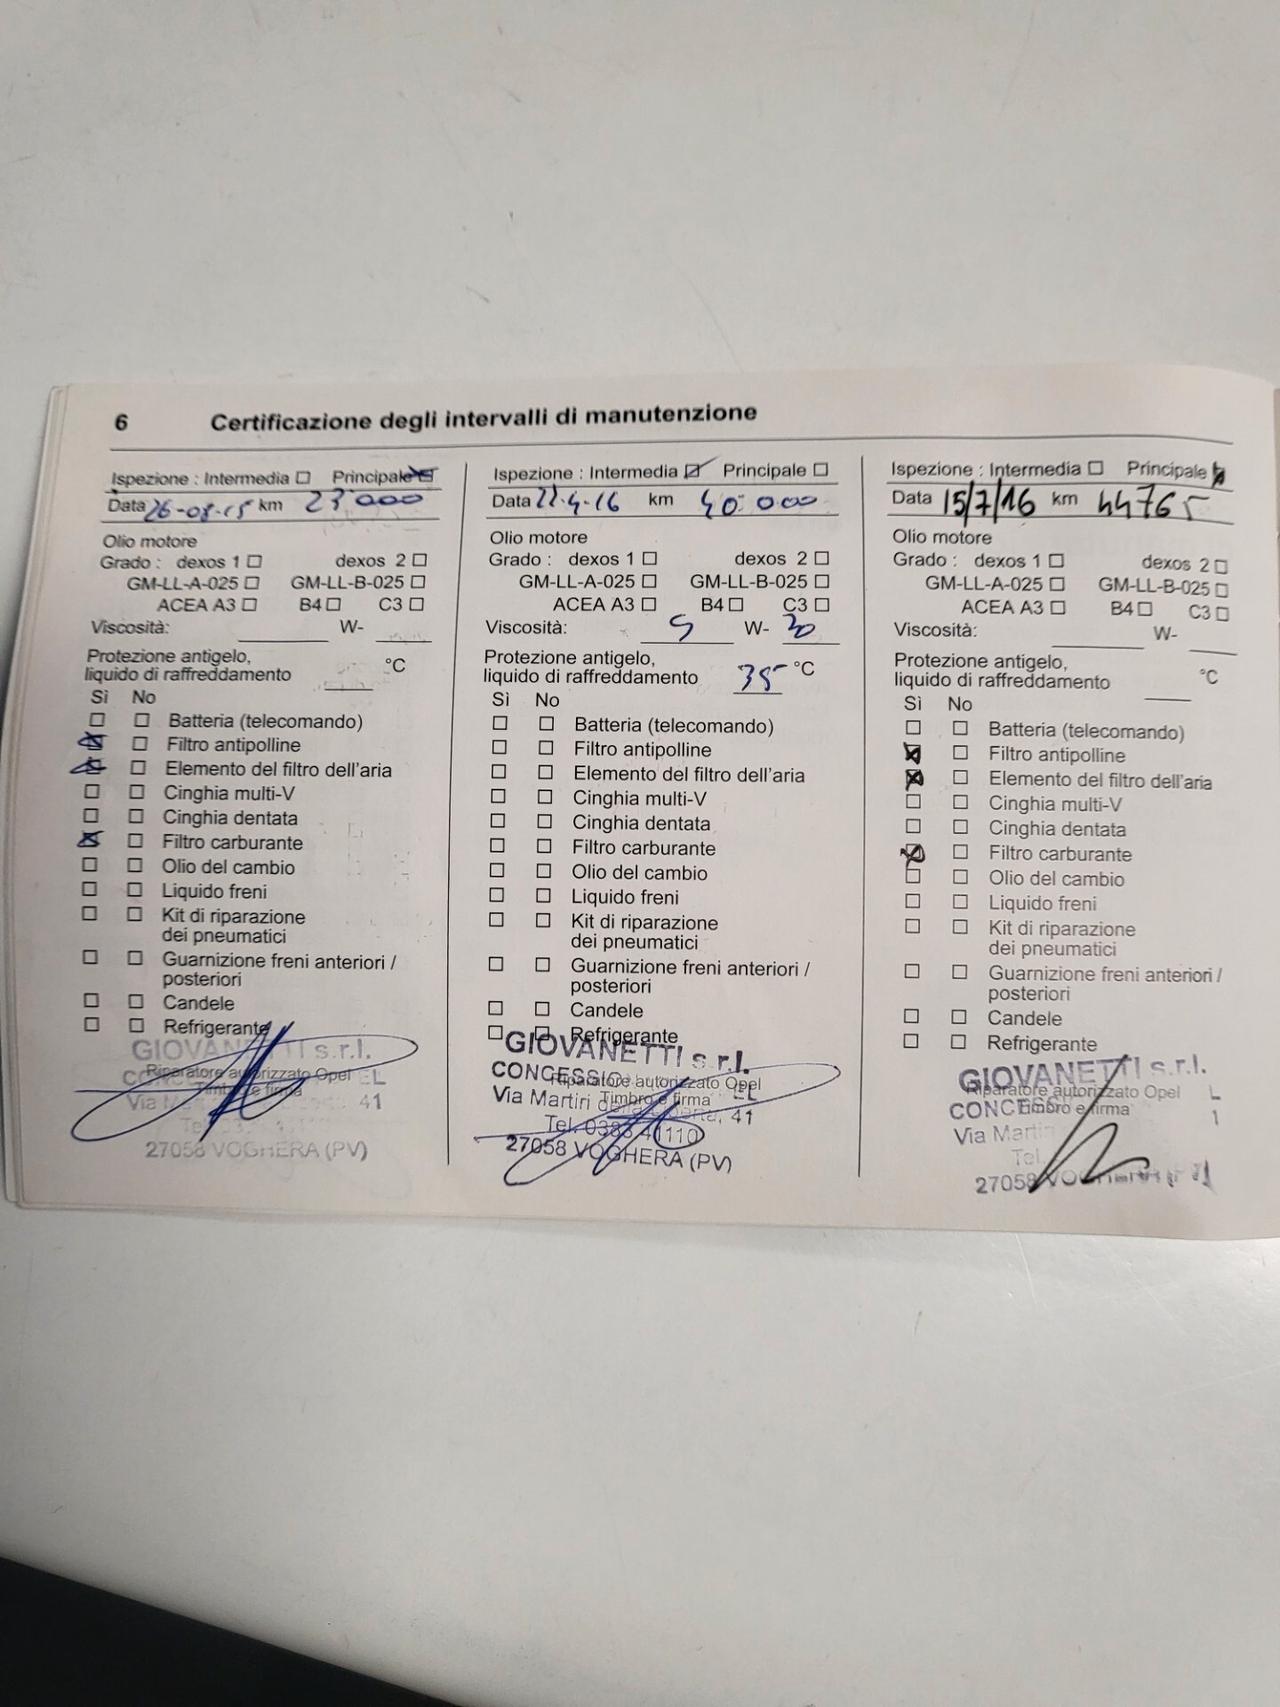 6 Certificazione degli intervalli di manutenzione
Ispezione : Intermedia ☐ Principale ☒
Data 26-08-15 km 23'000
Olio motore
Grado : dexos 1 ☐ dexos 2 ☐
GM-LL-A-025 ☐ GM-LL-B-025 ☐
ACEA A3 ☐ B4 ☐ C3 ☐
Viscosità: W-
Protezione antigelo,
liquido di raffreddamento °C
Sì No
☐ ☐ Batteria (telecomando)
☒ ☐ Filtro antipolline
☒ ☐ Elemento del filtro dell'aria
☐ ☐ Cinghia multi-V
☐ ☐ Cinghia dentata
☒ ☐ Filtro carburante
☐ ☐ Olio del cambio
☐ ☐ Liquido freni
☐ ☐ Kit di riparazione
dei pneumatici
☐ ☐ Guarnizione freni anteriori /
posteriori
☐ ☐ Candele
☐ ☐ Refrigerante
GIOVANETTI s.r.l.
Riparatore autorizzato Opel
Timbro e firma
Via 41
27058 VOGHERA (PV)
Ispezione : Intermedia ☒ Principale ☐
Data 22-4-16 km 40'000
Olio motore
Grado : dexos 1 ☐ dexos 2 ☐
GM-LL-A-025 ☐ GM-LL-B-025 ☐
ACEA A3 ☐ B4 ☐ C3 ☐
Viscosità: 5 W- 30
Protezione antigelo,
liquido di raffreddamento 35 °C
Sì No
☐ ☐ Batteria (telecomando)
☐ ☐ Filtro antipolline
☐ ☐ Elemento del filtro dell'aria
☐ ☐ Cinghia multi-V
☐ ☐ Cinghia dentata
☐ ☐ Filtro carburante
☐ ☐ Olio del cambio
☐ ☐ Liquido freni
☐ ☐ Kit di riparazione
dei pneumatici
☐ ☐ Guarnizione freni anteriori /
posteriori
☐ ☐ Candele
☐ ☐ Refrigerante
GIOVANETTI s.r.l.
Riparatore autorizzato Opel
Timbro e firma
Via Martiri della Libertà, 41
Tel. 0383 41110
27058 VOGHERA (PV)
Ispezione : Intermedia ☐ Principale ☒
Data 15/7/16 km 44765
Olio motore
Grado : dexos 1 ☐ dexos 2 ☐
GM-LL-A-025 ☐ GM-LL-B-025 ☐
ACEA A3 ☐ B4 ☐ C3 ☐
Viscosità: W-
Protezione antigelo,
liquido di raffreddamento °C
Sì No
☐ ☐ Batteria (telecomando)
☒ ☐ Filtro antipolline
☒ ☐ Elemento del filtro dell'aria
☐ ☐ Cinghia multi-V
☐ ☐ Cinghia dentata
☒ ☐ Filtro carburante
☐ ☐ Olio del cambio
☐ ☐ Liquido freni
☐ ☐ Kit di riparazione
dei pneumatici
☐ ☐ Guarnizione freni anteriori /
posteriori
☐ ☐ Candele
☐ ☐ Refrigerante
GIOVANETTI s.r.l.
Riparatore autorizzato Opel
Timbro e firma
Via Martiri
Tel.
27058